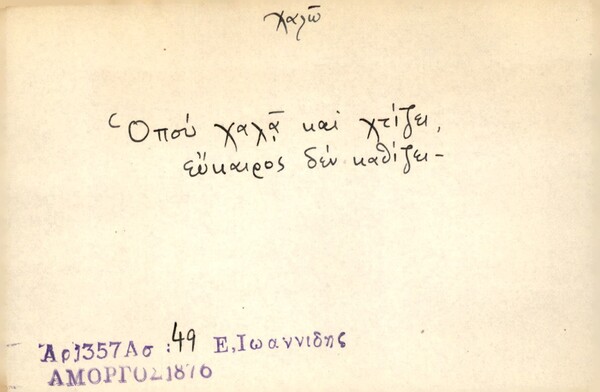 χαλῶ
Ὁποὺ χαλᾷ καὶ χτίζει,
εὔκαιρος δὲν καθίζει-
Ἀρ1357Ασ :49 Ε,Ιωαννιδης
ΑΜΟΡΓΟΣ1876